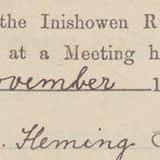 the Inishowen R
at a Meeting h
ovember 1
. Fleming